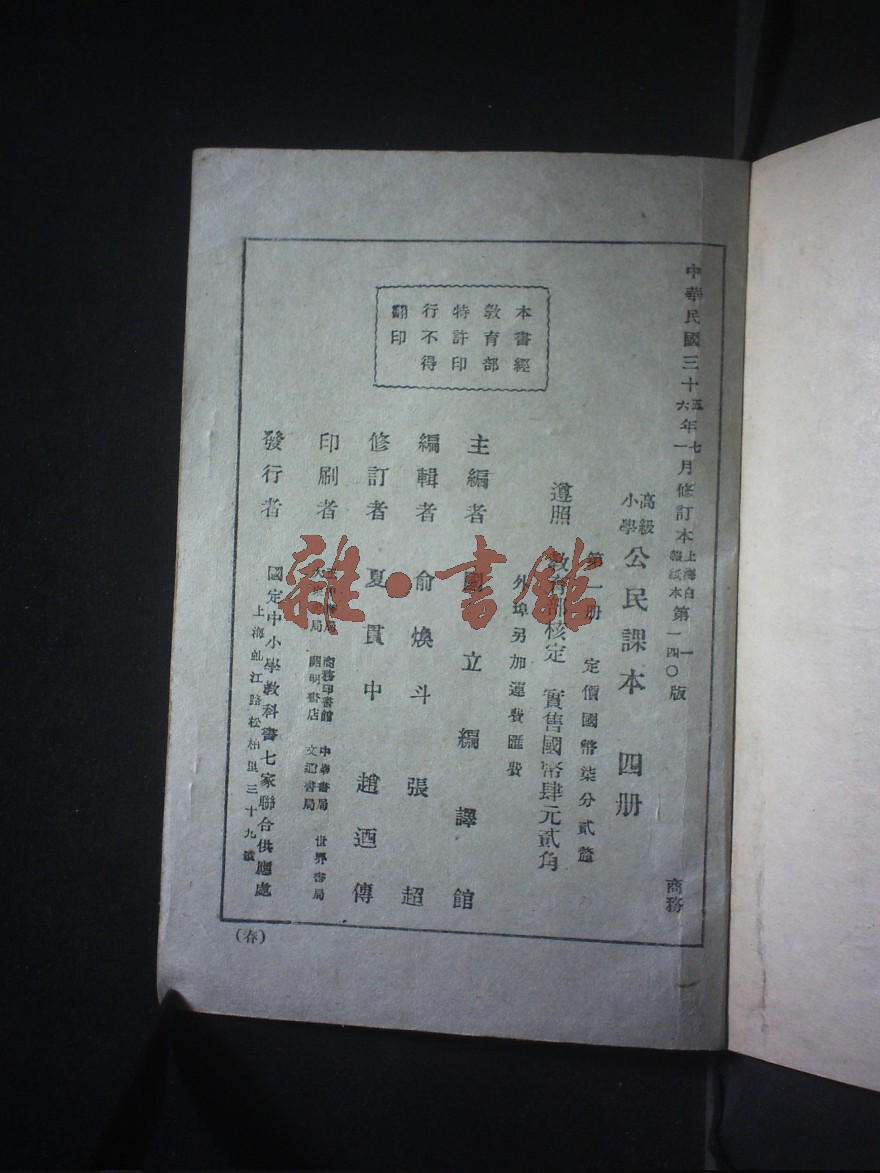 中華民國三十五年七月修訂本上海白第一版
六 一 報紙本 一四〇
高級
小學 公民課本 四册
第一册 定價國幣柒分貳釐
遵照 教育部核定 實售國幣肆元貳角
外埠另加運費匯費
主編者 國立編譯館
編輯者 俞煥斗 張超
修訂者 夏貫中 趙迺傳
印刷者 商務印書館 中華書局 世界書局
開明書店 文通書局
發行者 國定中小學教科書七家聯合供應處
上海虬江路松柏里三十九號
商務
本書經
教育部
特許印
行不得
翻印
(春)
雜·書館